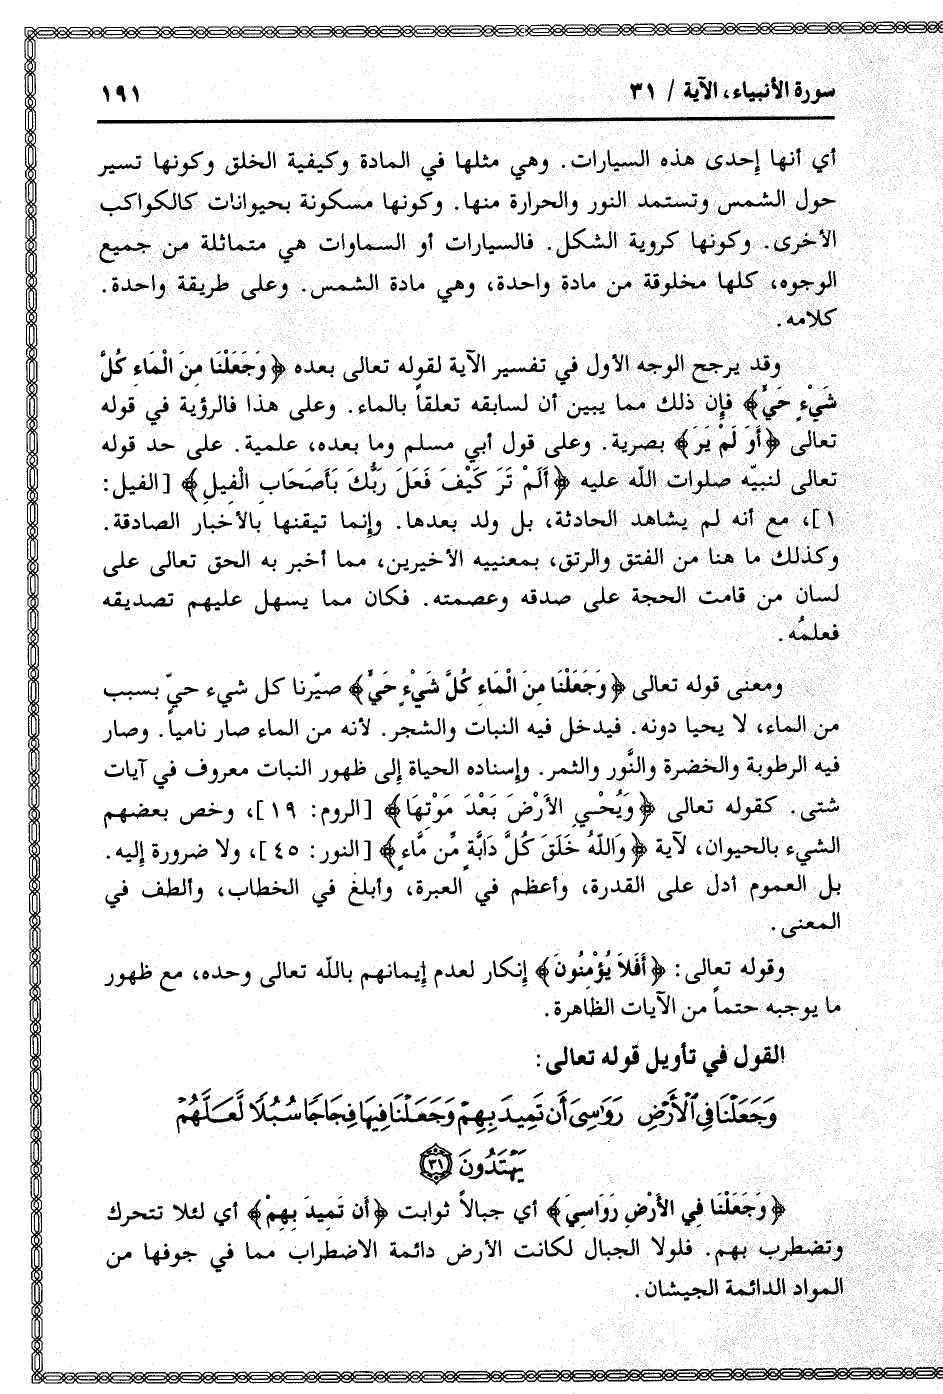 سورة الأنبياء، الآية / ٣١
١٩١
أي أنها إحدى هذه السيارات. وهي مثلها في المادة وكيفية الخلق وكونها تسير
حول الشمس وتستمد النور والحرارة منها. وكونها مسكونة بحيوانات كالكواكب
الأخرى. وكونها كروية الشكل. فالسيارات أو السماوات هي متماثلة من جميع
الوجوه، كلها مخلوقة من مادة واحدة، وهي مادة الشمس. وعلى طريقة واحدة.
كلامه.
وقد يرجح الوجه الأول في تفسير الآية لقوله تعالى بعده ﴿وَجَعَلْنَا مِنَ الْمَاءِ كُلَّ
شَيْءٍ حَيٍّ﴾ فإن ذلك مما يبين أن لسابقه تعلقاً بالماء. وعلى هذا فالرؤية في قوله
تعالى ﴿أَوَ لَمْ يَرَ﴾ بصرية. وعلى قول أبي مسلم وما بعده، علمية. على حد قوله
تعالى لنبيّه صلوات اللّه عليه ﴿أَلَمْ تَرَ كَيْفَ فَعَلَ رَبُّكَ بَأَصَحَابِ الْفِيلِ﴾ [الفيل:
١]، مع أنه لم يشاهد الحادثة، بل ولد بعدها. وإنما تيقنها بالأخبار الصادقة.
وكذلك ما هنا من الفتق والرتق، بمعنييه الأخيرين، مما أخبر به الحق تعالى على
لسان من قامت الحجة على صدقه وعصمته. فكان مما يسهل عليهم تصديقه
فعلمُه.
ومعنى قوله تعالى ﴿وَجَعَلْنَا مِنَ الْمَاءِ كُلَّ شَيْءٍ حَيٍّ﴾ صيّرنا كل شيء حيّ بسبب
من الماء، لا يحيا دونه. فيدخل فيه النبات والشجر. لأنه من الماء صار نامياً. وصار
فيه الرطوبة والخضرة والنَّور والثمر. وإسناده الحياة إلى ظهور النبات معروف في آيات
شتى. كقوله تعالى ﴿وَيُحْيِي الأَرْضَ بَعْدَ مَوْتِهَا﴾ [الروم: ١٩]، وخص بعضهم
الشيء بالحيوان، لآية ﴿وَاللّهُ خَلَقَ كُلَّ دَابَّةٍ مِّن مَّاءٍ﴾ [النور: ٤٥]، ولا ضرورة إليه.
بل العموم أدل على القدرة، وأعظم في العبرة، وأبلغ في الخطاب، وألطف في
المعنى.
وقوله تعالى: ﴿أَفَلاَ يُؤْمِنُونَ﴾ إنكار لعدم إيمانهم باللّه تعالى وحده، مع ظهور
ما يوجبه حتماً من الآيات الظاهرة.
القول في تأويل قوله تعالى:
وَجَعَلْنَا فِي ٱلْأَرْضِ رَوَٰسِىَ أَن تَمِيدَ بِهِمْ وَجَعَلْنَا فِيهَا فِجَاجًا سُبُلًا لَّعَلَّهُمْ
يَهْتَدُونَ ٣١
﴿وَجَعَلْنَا فِي الأَرْضِ رَوَاسِيَ﴾ أي جبالاً ثوابت ﴿أَن تَمِيدَ بِهِمْ﴾ أي لئلا تتحرك
وتضطرب بهم. فلولا الجبال لكانت الأرض دائمة الاضطراب مما في جوفها من
المواد الدائمة الجيشان.